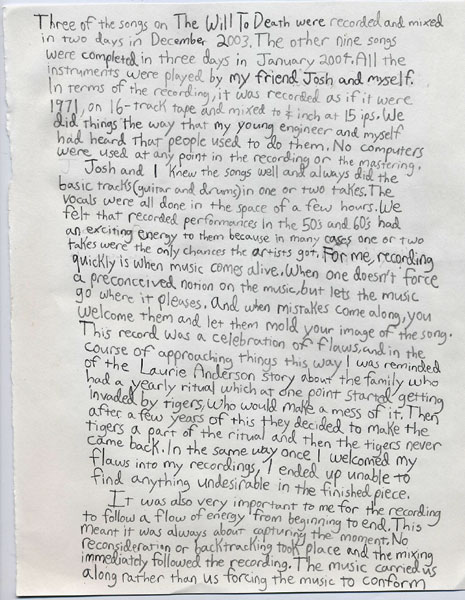 Three of the songs on The Will To Death were recorded and mixed
in two days in December 2003. The other nine songs
were completed in three days in January 2004. All the
instruments were played by my friend Josh and myself.
In terms of the recording, it was recorded as if it were
1971, on 16-track tape and mixed to ¼ inch at 15 ips. We
did things the way that my young engineer and myself
had heard that people used to do them. No computers
were used at any point in the recording or the mastering.
Josh and I knew the songs well and always did the
basic tracks (guitar and drums) in one or two takes. The
vocals were all done in the space of a few hours. We
felt that recorded performances in the 50's and 60's had
an exciting energy to them because in many cases one or two
takes were the only chances the artists got. For me, recording
quickly is when music comes alive. When one doesn't force
a preconceived notion on the music, but lets the music
go where it pleases. And when mistakes come along, you
welcome them and let them mold your image of the song.
This record was a celebration of flaws, and in the
course of approaching things this way I was reminded
of the Laurie Anderson story about the family who
had a yearly ritual which at one point started getting
invaded by tigers, who would make a mess of it. Then
after a few years of this they decided to make the
tigers a part of the ritual and then the tigers never
came back. In the same way once I welcomed my
flaws into my recordings, I ended up unable to
find anything undesirable in the finished piece.
It was also very important to me for the recording
to follow a flow of energy from beginning to end. This
meant it was always about capturing the moment. No
reconsideration or backtracking took place and the mixing
immediately followed the recording. The music carried us
along rather than us forcing the music to conform